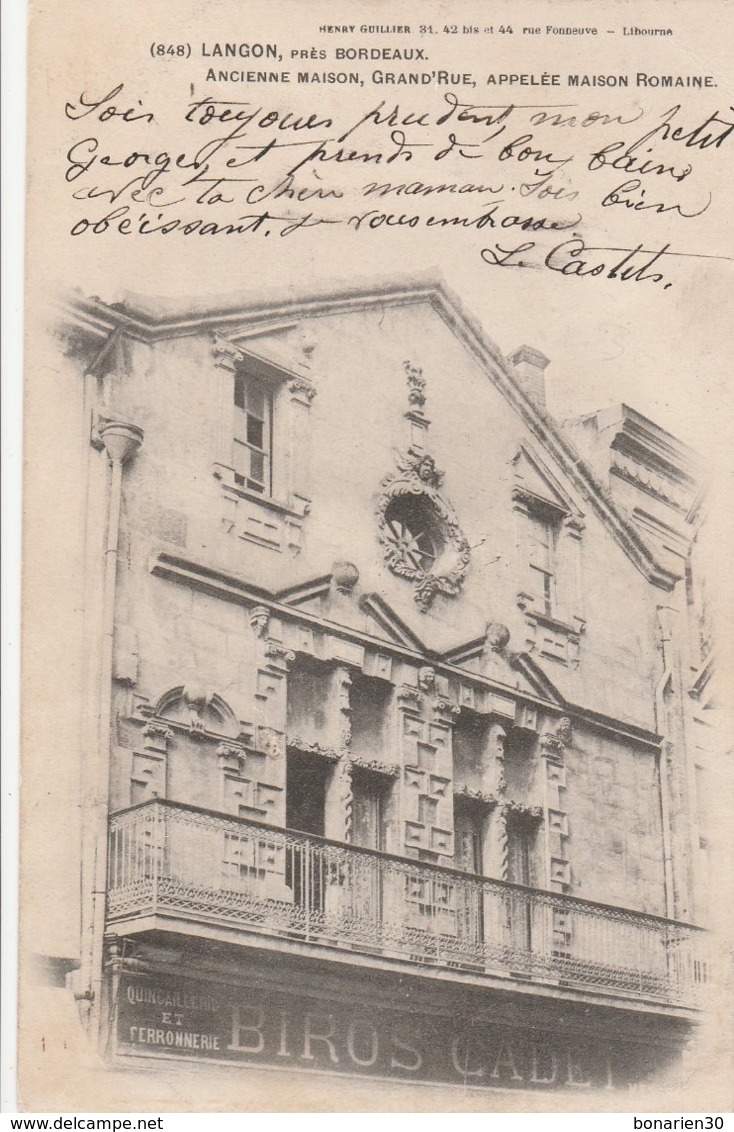 HENRY GUILLIER 31, 42 bis et 44 rue Fonneuve – Libourne
(848) LANGON, PRÈS BORDEAUX.
ANCIENNE MAISON, GRAND'RUE, APPELÉE MAISON ROMAINE.
Sois toujours prudent, mon petit
Georges, et prends de bons bains
avec ta chère maman. Sois bien
obéissant. Je vous embrasse.
L. Castets.
QUINCAILLERIE
ET
FERRONNERIE
BIROS CADET
bonarien30